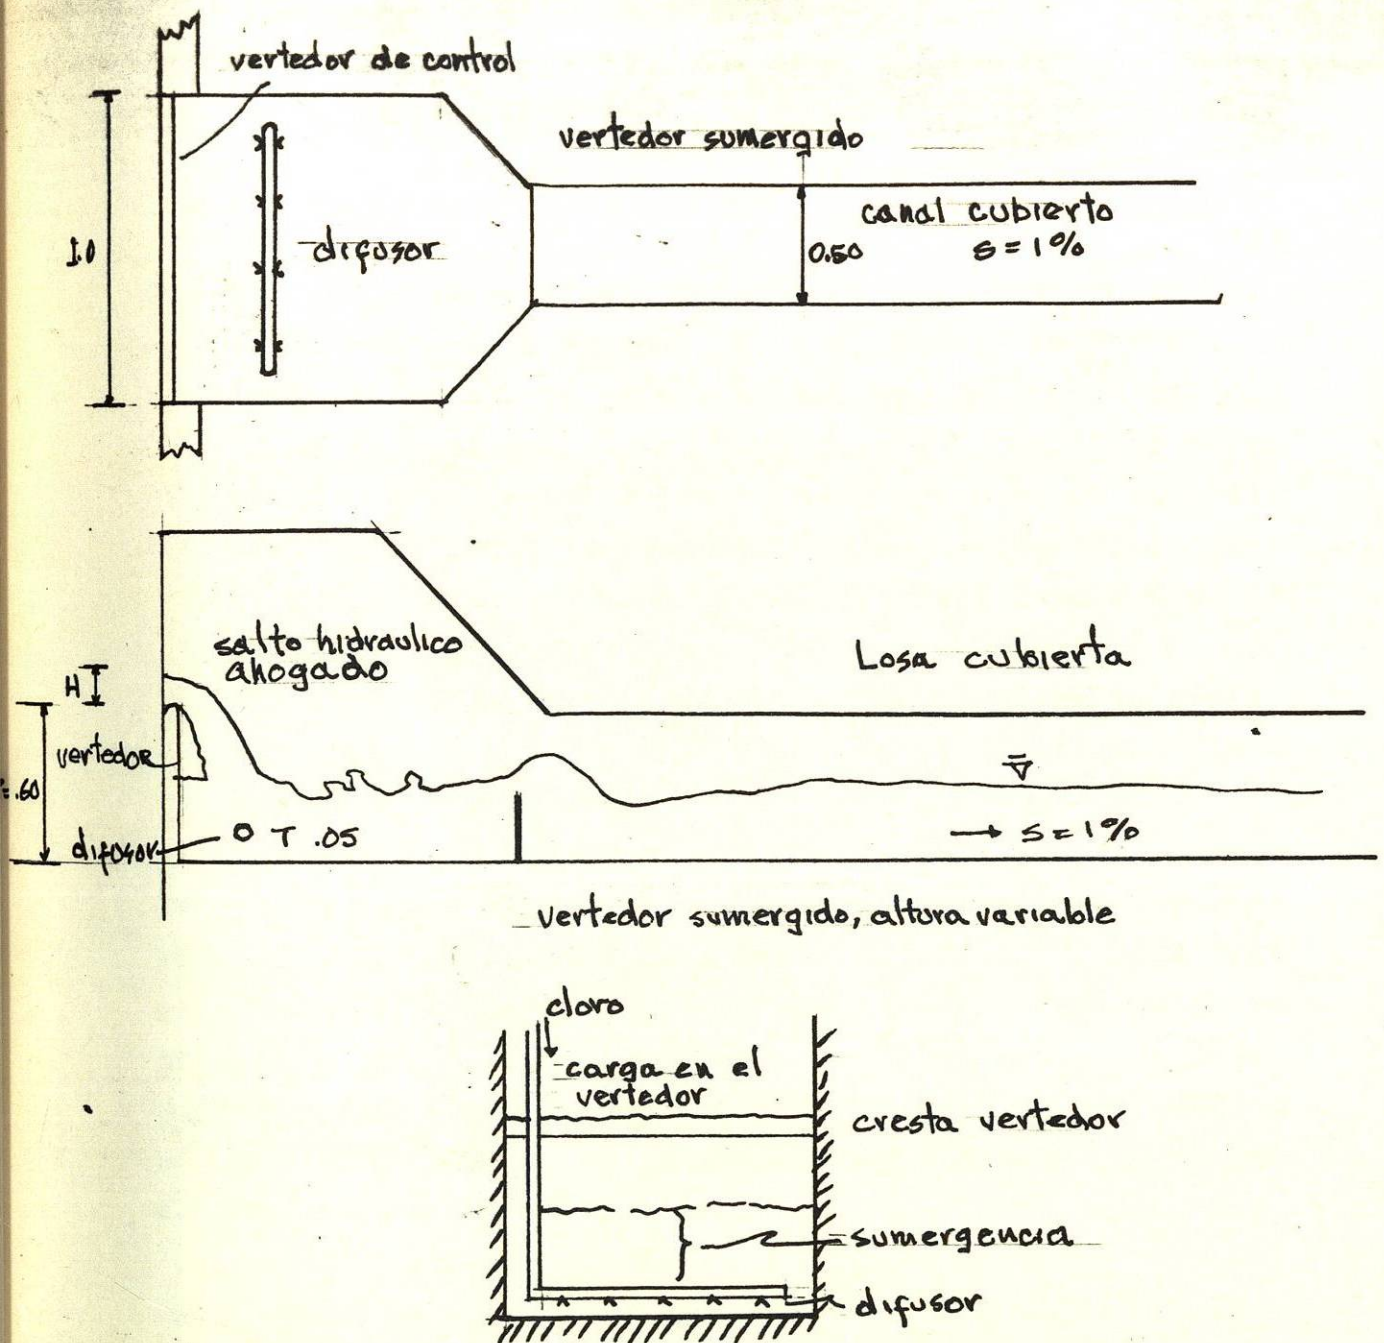 vertedor de control
vertedor sumergido
canal cubierto
S = 1%
1.0
difusor
0.50
salto hidraulico
ahogado
Losa cubierta
H
vertedor
= .60
difusor
T .05
S = 1%
vertedor sumergido, altura variable
cloro
carga en el
vertedor
cresta vertedor
sumergencia
difusor